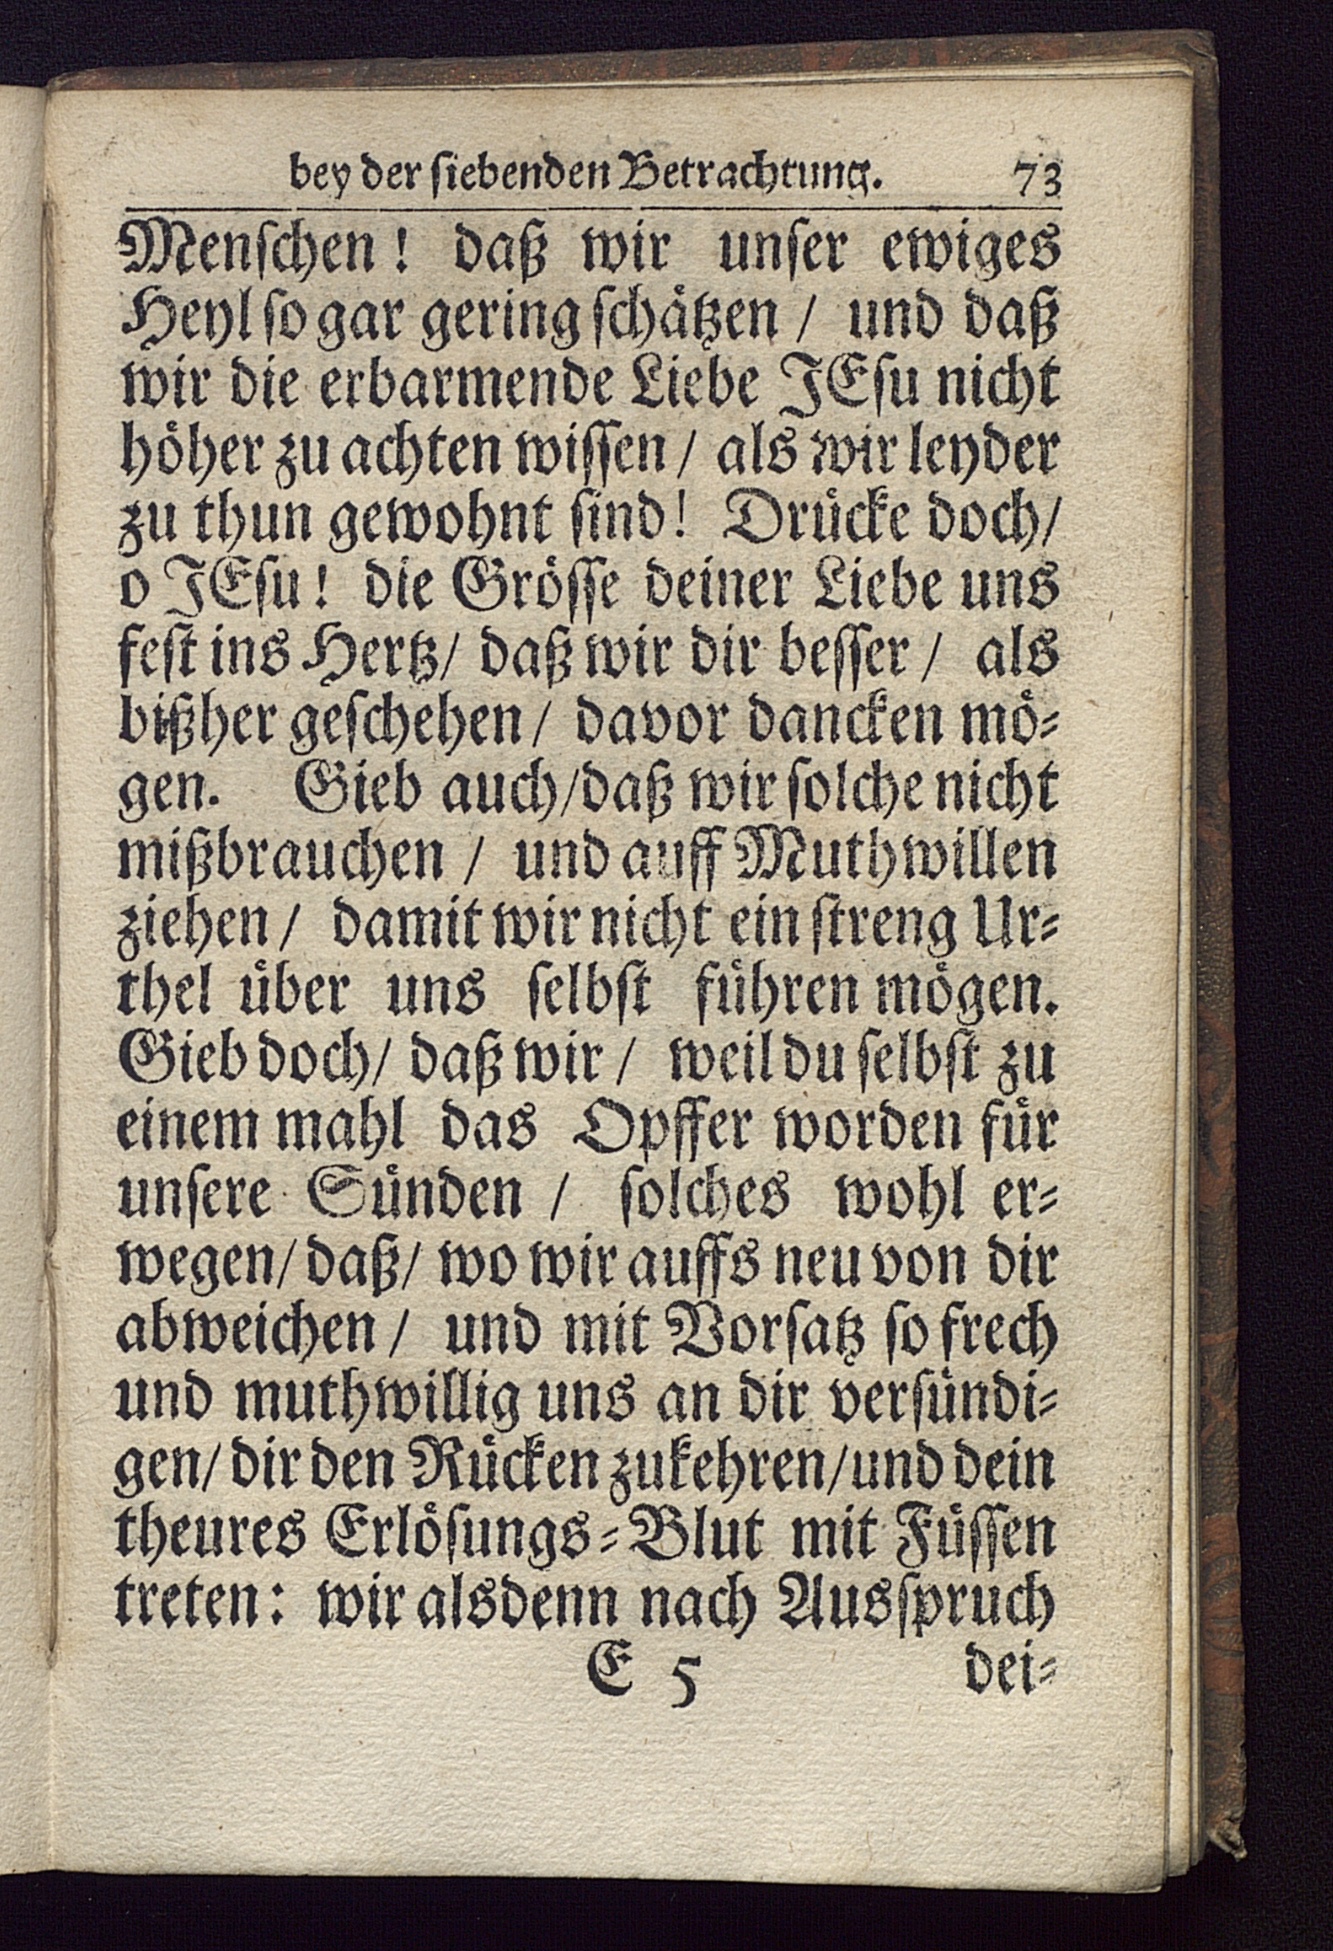 bey der siebenden Betrachtung. 73
Menschen! daß wir unser ewiges
Heyl so gar gering schätzen / und daß
wir die erbarmende Liebe JEsu nicht
höher zu achten wissen / als wir leyder
zu thun gewohnt sind! Drücke doch/
o JEsu! die Grösse deiner Liebe uns
fest ins Hertz/ daß wir dir besser / als
bißher geschehen / davor dancken mö-
gen. Gieb auch/daß wir solche nicht
mißbrauchen / und auff Muthwillen
ziehen / damit wir nicht ein streng Ur-
thel über uns selbst führen mögen.
Gieb doch/ daß wir / weil du selbst zu
einem mahl das Opffer worden für
unsere Sünden / solches wohl er-
wegen/ daß/ wo wir auffs neu von dir
abweichen / und mit Vorsatz so frech
und muthwillig uns an dir versündi-
gen/ dir den Rücken zukehren/und dein
theures Erlösungs-Blut mit Füssen
treten: wir alsdenn nach Ausspruch
E 5 dei-